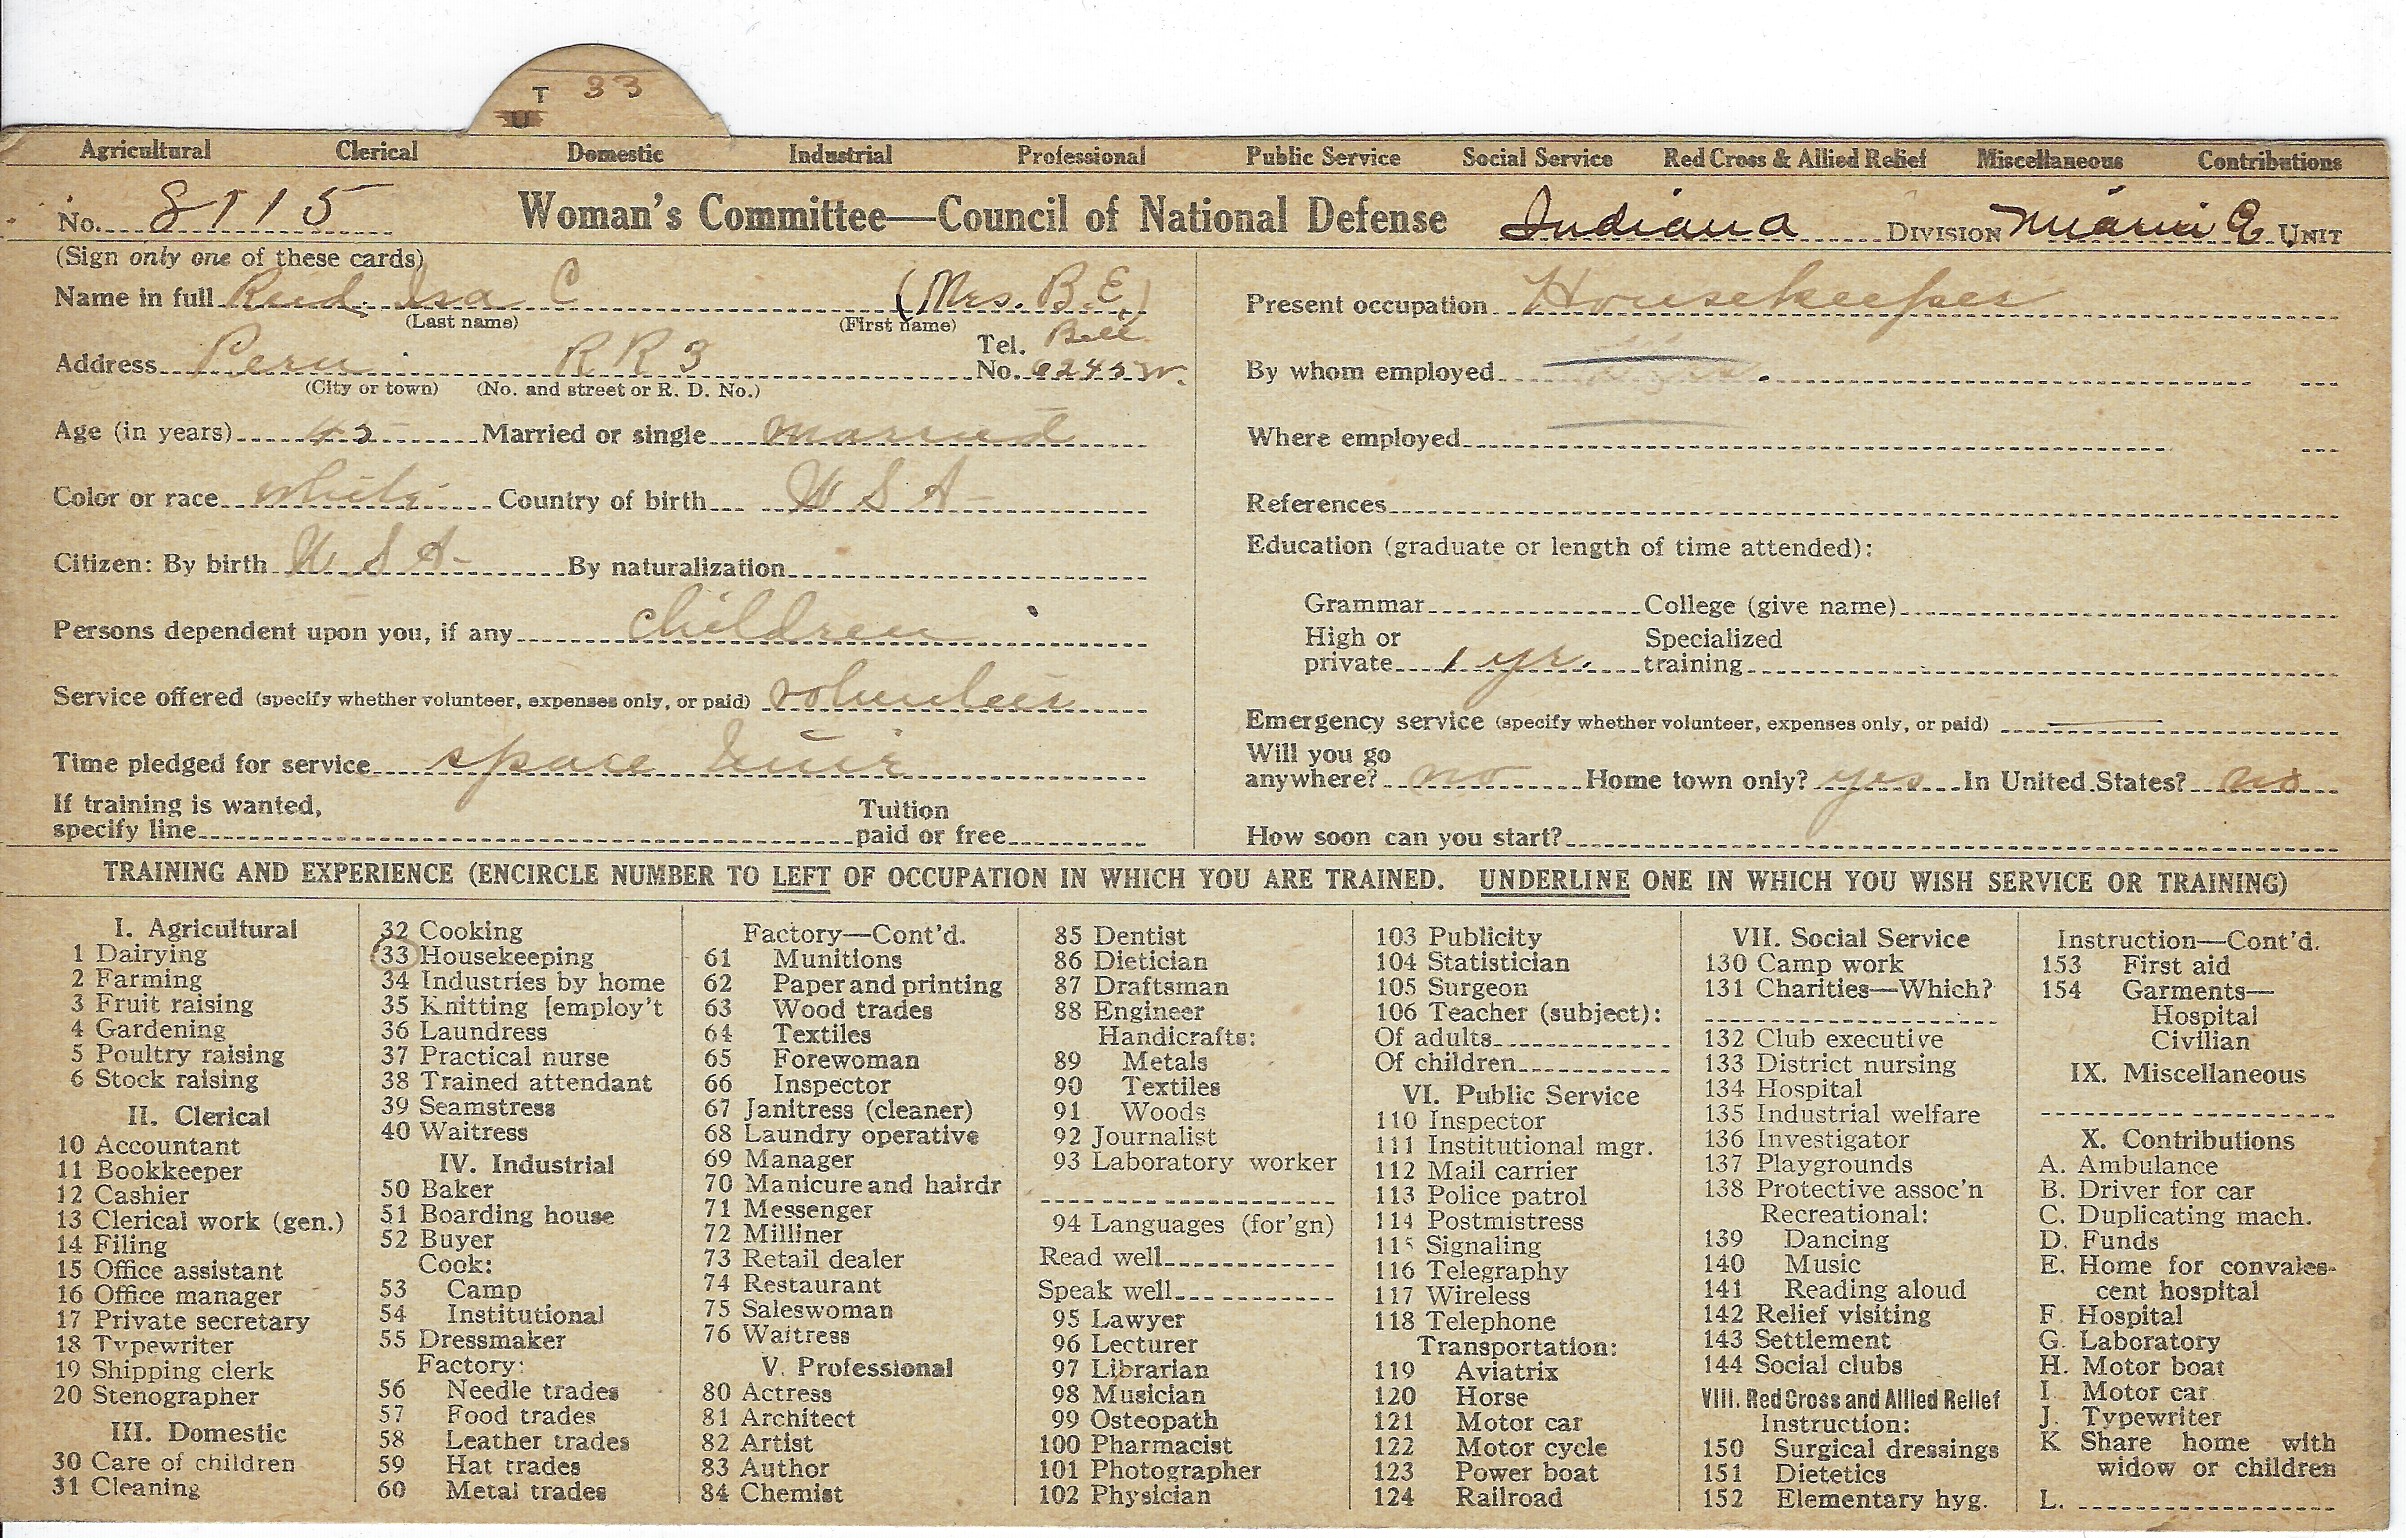 T 33
U
Agricultural Clerical Domestic Industrial Professional Public Service Social Service Red Cross & Allied Relief Miscellaneous Contributions
No. 8115 Woman's Committee—Council of National Defense Indiana DIVISION Miami UNIT
(Sign only one of these cards)
Name in full Isa C (Mrs. B.E.)
(Last name) (First name)
Address Peru RR3 Tel. No. Bell
(City or town) (No. and street or R. D. No.)
Age (in years) Married or single married
Color or race white Country of birth USA
Citizen: By birth USA By naturalization
Persons dependent upon you, if any children
Service offered (specify whether volunteer, expenses only, or paid) volunteer
Time pledged for service space time
If training is wanted, specify line Tuition paid or free
Present occupation Housekeeper
By whom employed
Where employed
References
Education (graduate or length of time attended):
Grammar College (give name)
High or private 1 yr. Specialized training
Emergency service (specify whether volunteer, expenses only, or paid)
Will you go anywhere? no Home town only? yes In United States? no
How soon can you start?
TRAINING AND EXPERIENCE (ENCIRCLE NUMBER TO LEFT OF OCCUPATION IN WHICH YOU ARE TRAINED. UNDERLINE ONE IN WHICH YOU WISH SERVICE OR TRAINING)
I. Agricultural
1 Dairying
2 Farming
3 Fruit raising
4 Gardening
5 Poultry raising
6 Stock raising
II. Clerical
10 Accountant
11 Bookkeeper
12 Cashier
13 Clerical work (gen.)
14 Filing
15 Office assistant
16 Office manager
17 Private secretary
18 Typewriter
19 Shipping clerk
20 Stenographer
III. Domestic
30 Care of children
31 Cleaning
32 Cooking
33 Housekeeping
34 Industries by home
35 Knitting [employ't
36 Laundress
37 Practical nurse
38 Trained attendant
39 Seamstress
40 Waitress
IV. Industrial
50 Baker
51 Boarding house
52 Buyer
Cook:
53 Camp
54 Institutional
55 Dressmaker
Factory:
56 Needle trades
57 Food trades
58 Leather trades
59 Hat trades
60 Metal trades
Factory—Cont'd.
61 Munitions
62 Paper and printing
63 Wood trades
64 Textiles
65 Forewoman
66 Inspector
67 Janitress (cleaner)
68 Laundry operative
69 Manager
70 Manicure and hairdr
71 Messenger
72 Milliner
73 Retail dealer
74 Restaurant
75 Saleswoman
76 Waitress
V. Professional
80 Actress
81 Architect
82 Artist
83 Author
84 Chemist
85 Dentist
86 Dietician
87 Draftsman
88 Engineer
Handicrafts:
89 Metals
90 Textiles
91 Woods
92 Journalist
93 Laboratory worker
94 Languages (for'gn)
Read well
Speak well
95 Lawyer
96 Lecturer
97 Librarian
98 Musician
99 Osteopath
100 Pharmacist
101 Photographer
102 Physician
103 Publicity
104 Statistician
105 Surgeon
106 Teacher (subject):
Of adults
Of children
VI. Public Service
110 Inspector
111 Institutional mgr.
112 Mail carrier
113 Police patrol
114 Postmistress
115 Signaling
116 Telegraphy
117 Wireless
118 Telephone
Transportation:
119 Aviatrix
120 Horse
121 Motor car
122 Motor cycle
123 Power boat
124 Railroad
VII. Social Service
130 Camp work
131 Charities—Which?
132 Club executive
133 District nursing
134 Hospital
135 Industrial welfare
136 Investigator
137 Playgrounds
138 Protective assoc'n
Recreational:
139 Dancing
140 Music
141 Reading aloud
142 Relief visiting
143 Settlement
144 Social clubs
VIII. Red Cross and Allied Relief
Instruction:
150 Surgical dressings
151 Dietetics
152 Elementary hyg.
Instruction—Cont'd.
153 First aid
154 Garments—
Hospital
Civilian
IX. Miscellaneous
X. Contributions
A. Ambulance
B. Driver for car
C. Duplicating mach.
D. Funds
E. Home for convales-
cent hospital
F. Hospital
G. Laboratory
H. Motor boat
I. Motor car
J. Typewriter
K Share home with
widow or children
L.